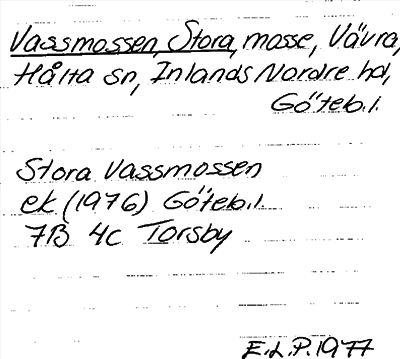 Vassmossen, Stora, mosse, Vävra,
Hålta sn, Inlands Nordre hd,
Göteb.l.
Stora Vassmossen
ek (1976) Göteb.l.
7B 4c Torsby
E.L.P. 1977